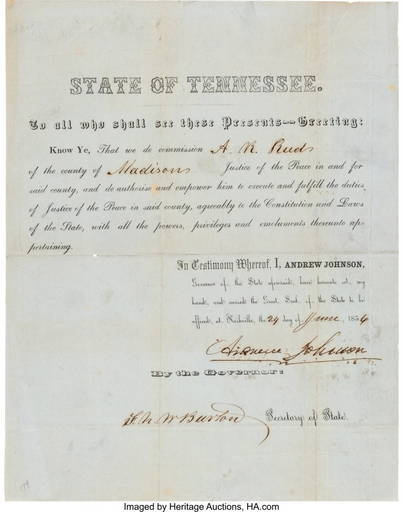 STATE OF TENNESSEE.
To all who shall see these Presents—Greeting:
Know Ye, That we do commission A. R. Reids
of the county of Madison Justice of the Peace in and for
said county, and do authorise and empower him to execute and fulfill the duties
of Justice of the Peace in said county, agreeably to the Constitution and Laws
of the State, with all the powers, privileges and emoluments thereunto ap-
pertaining.
In Testimony Whereof, I, ANDREW JOHNSON,
Governor of the State aforesaid, have hereunto set my
hand, and caused the Great Seal of the State to be
affixed, at Nashville, the 24 day of June, 1856
Andrew Johnson
By the Governor:
F. N. W. Burton Secretary of State.
Imaged by Heritage Auctions, HA.com